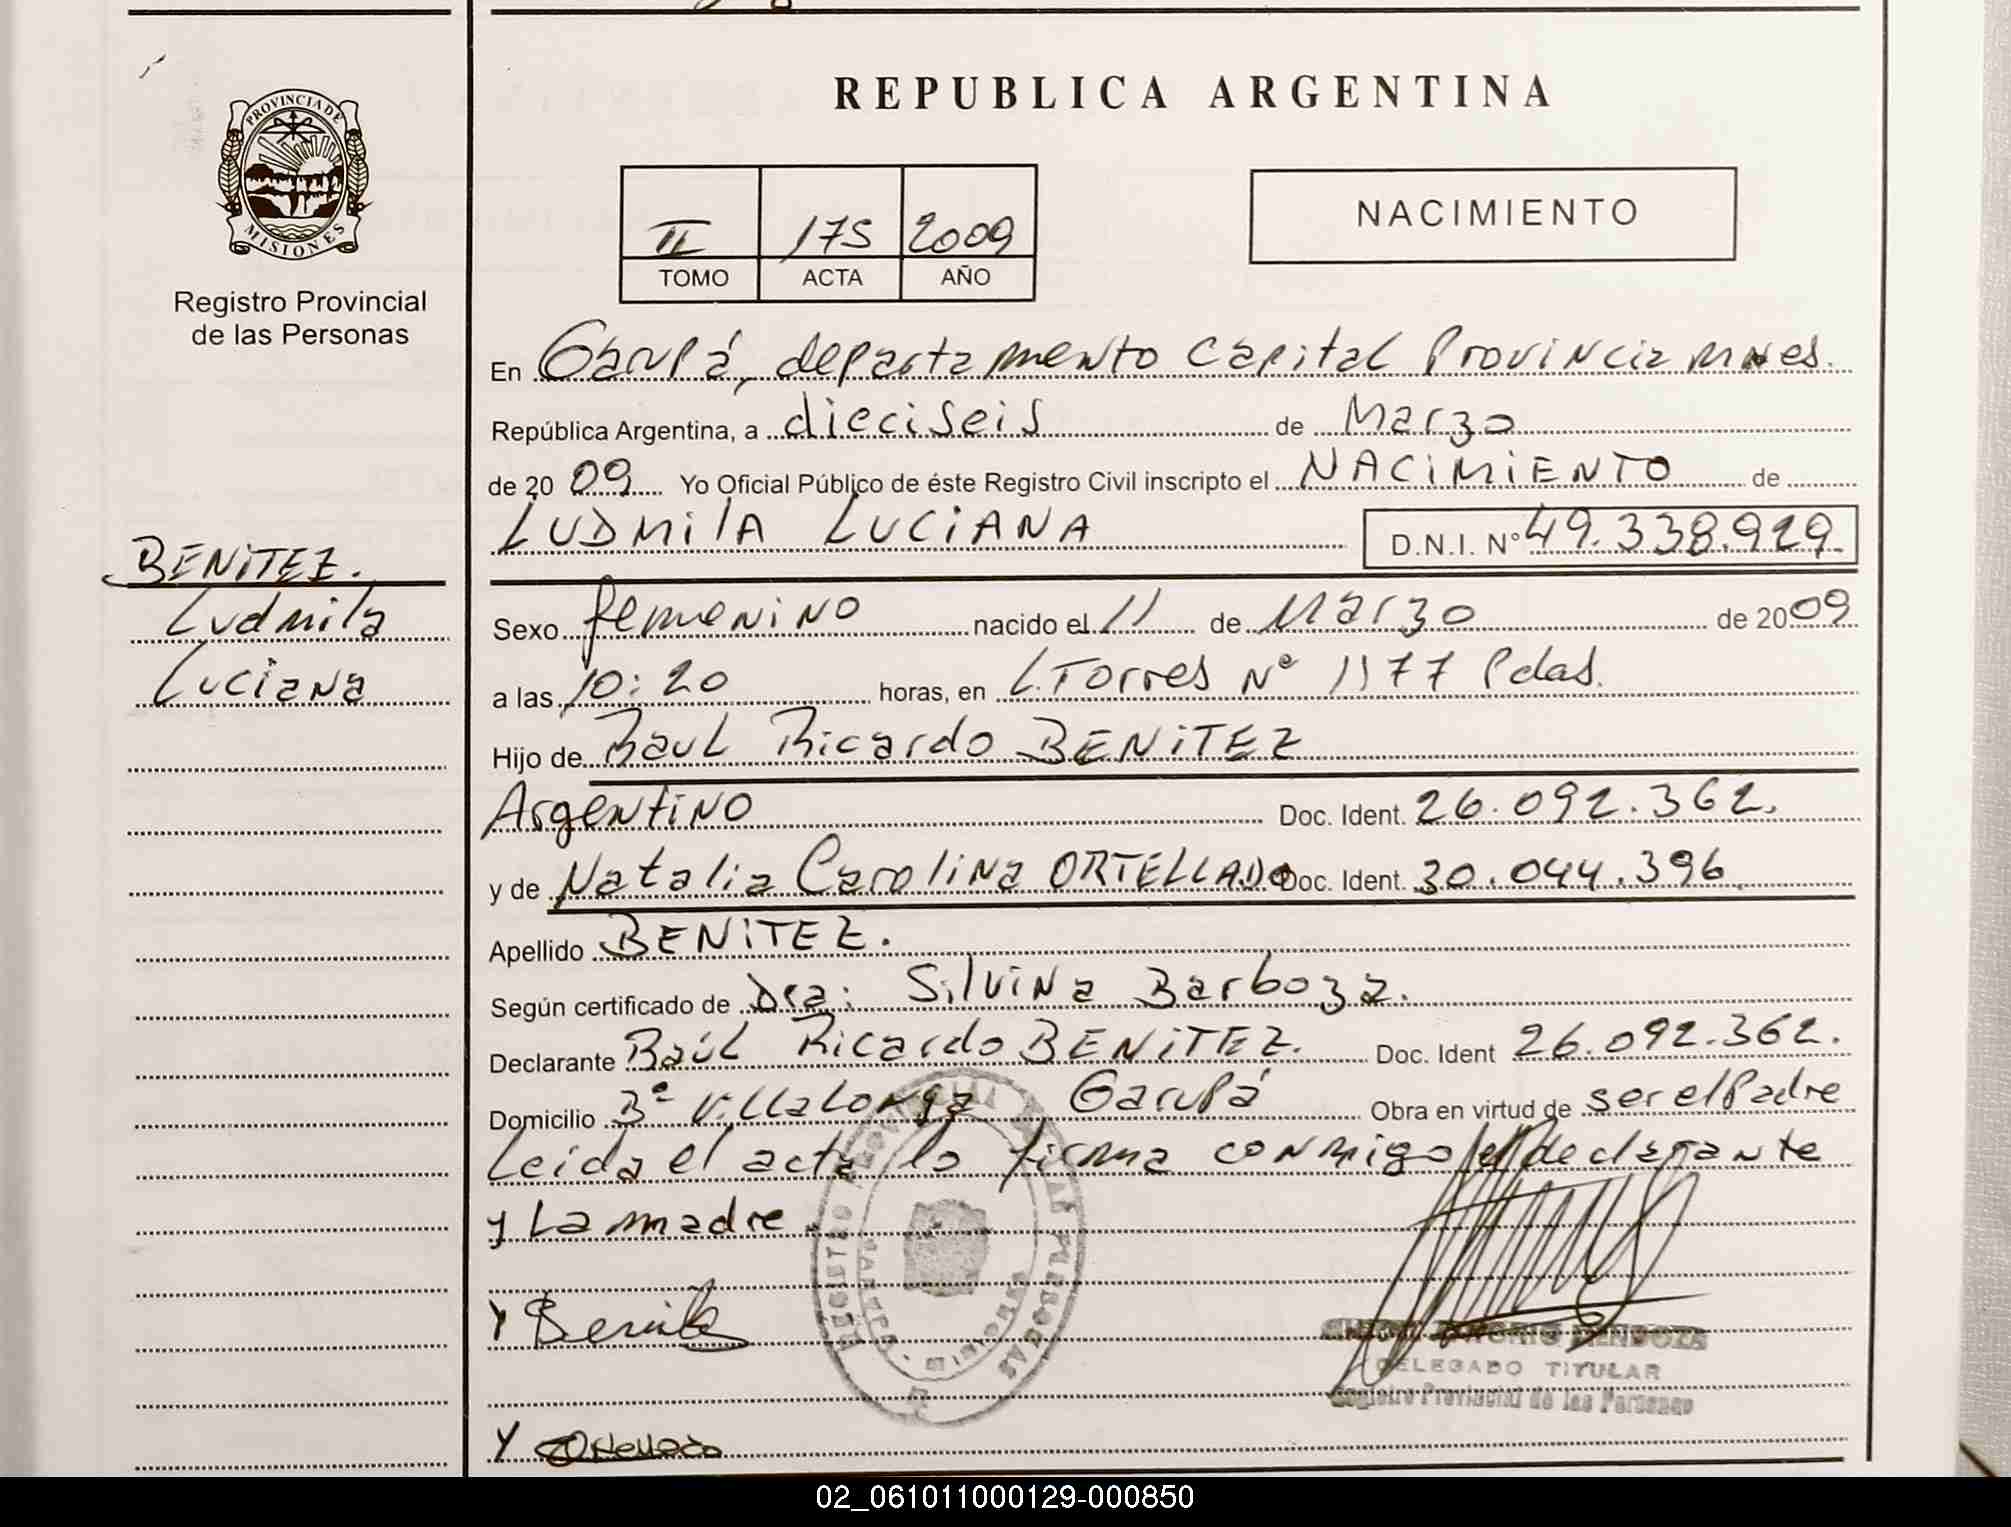 REPUBLICA ARGENTINA
PROVINCIA DE
MISIONES
Registro Provincial
de las Personas
II 175 2009
TOMO ACTA AÑO
NACIMIENTO
En Garupá, departamento Capital Provincia Mnes.
República Argentina, a dieciseis de Marzo
de 2009 Yo Oficial Público de éste Registro Civil inscripto el NACIMIENTO de
LUDMilA LUCIANA D.N.I. N° 49.338.929.
BENITEZ.
Ludmila
Luciana
Sexo femenino nacido el 11 de Marzo de 2009
a las 10:20 horas, en L. Torres Nº 1177 Pdas.
Hijo de Raul Ricardo BENITEZ
Argentino Doc. Ident. 26.092.362.
y de Natalia Carolina ORTELLADO Doc. Ident. 30.044.396
Apellido BENITEZ.
Según certificado de Dra: Silvina Barboza.
Declarante Raúl Ricardo BENITEZ. Doc. Ident 26.092.362.
Domicilio Bº Villalonga Garupá Obra en virtud de ser el Padre
Leida el acta lo firma conmigo el declarante
y La madre
Y Benitez
MENDOZA
DELEGADO TITULAR
Registro Provincial de las Personas
Y Ortellado
REGISTRO PROVINCIAL DE LAS PERSONAS
02_061011000129-000850